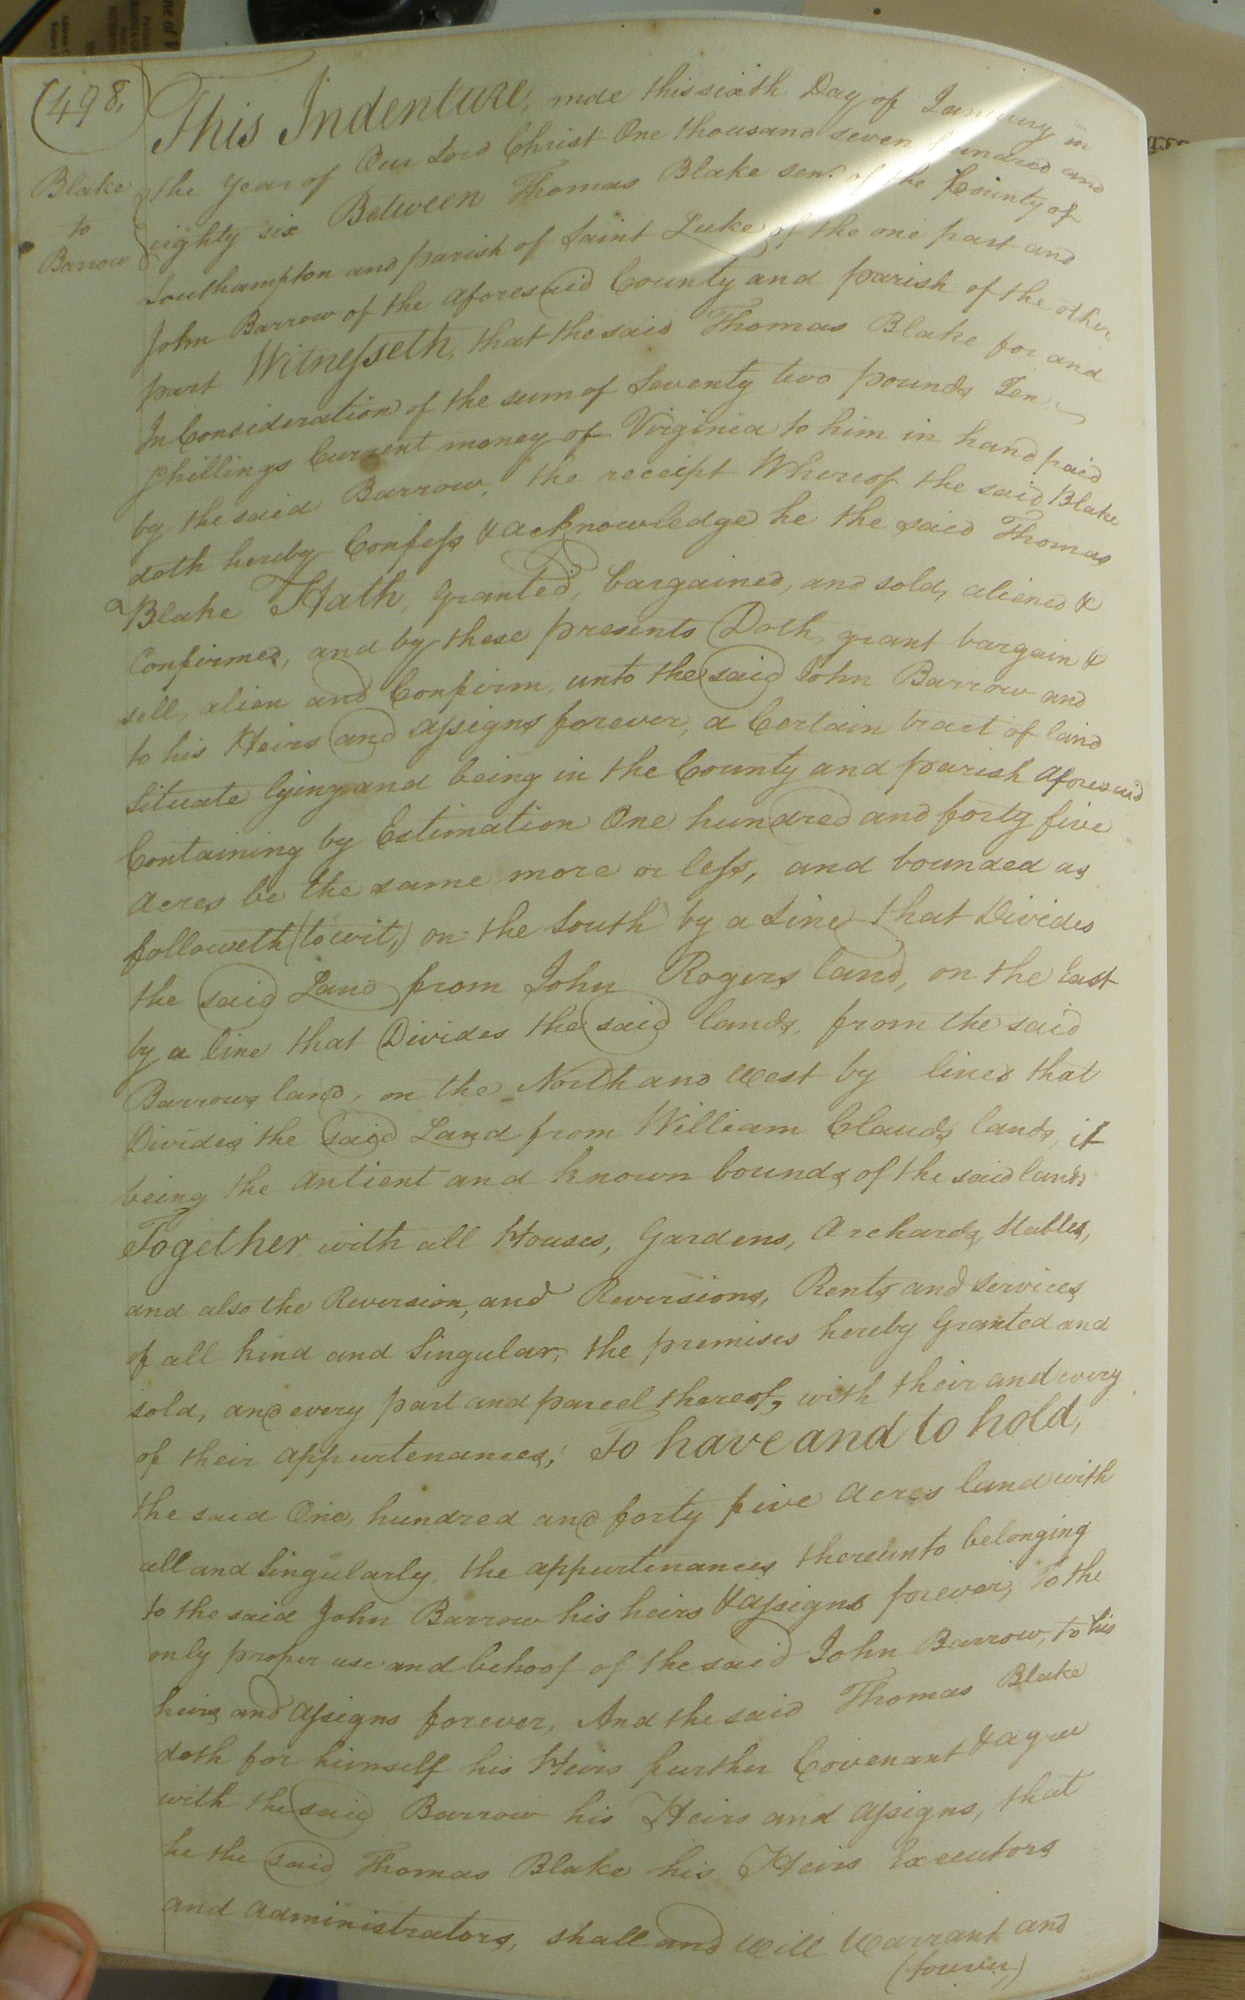 (498,
Blake
to
Barrow
This Indenture, mde this sixth Day of January in
the year of Our Lord Christ One thousand seven hundred and
eighty six Between Thomas Blake senr. of the County of
Southampton and parish of Saint Luke of the one part and
John Barrow of the aforesaid County and parish of the other
part Witnesseth, that the said Thomas Blake for and
In Consideration of the sum of Seventy two pounds Ten
Shillings Current money of Virginia to him in hand paid
by the said Barrow, the receipt Whereof the said Blake
doth hereby Confess & acknowledge he the said Thomas
Blake Hath, granted, bargained, and sold, aliened &
Confirmed, and by these presents Doth, grant bargain &
sell, alien and Confirm, unto the said John Barrow and
to his Heirs and assigns forever, a Certain tract of land
Situate lying and being in the County and parish aforesaid
Containing by Estimation One hundred and forty five
acres be the same more or less, and bounded as
followeth (towit,) on the South by a Line that Divides
the said Land from John Rogers land, on the East
by a line that Divides the said lands, from the said
Barrows land, on the North and West by lines that
Divides the said Land from William Clauds lands, it
being the antient and known bounds of the said lands
Together with all Houses, Gardens, Orchards, Stables,
and also the Reversion, and Reversions, Rents and services
of all kind and Singular, the premises hereby Granted and
sold, and every part and parcel thereof, with their and every
of their appurtenances; To have and to hold,
the said One, hundred and forty five acres land with
all and Singularly, the appurtenances thereunto belonging
to the said John Barrow his heirs & assigns forever, to the
only proper use and behoof of the said John Barrow, to his
heirs and assigns forever, And the said Thomas Blake
doth for himself his Heirs further Covenant & agree
with the said Barrow his Heirs and assigns, that
he the said Thomas Blake his Heirs Executors
and administrators, shall and will Warrant and
(forever,)